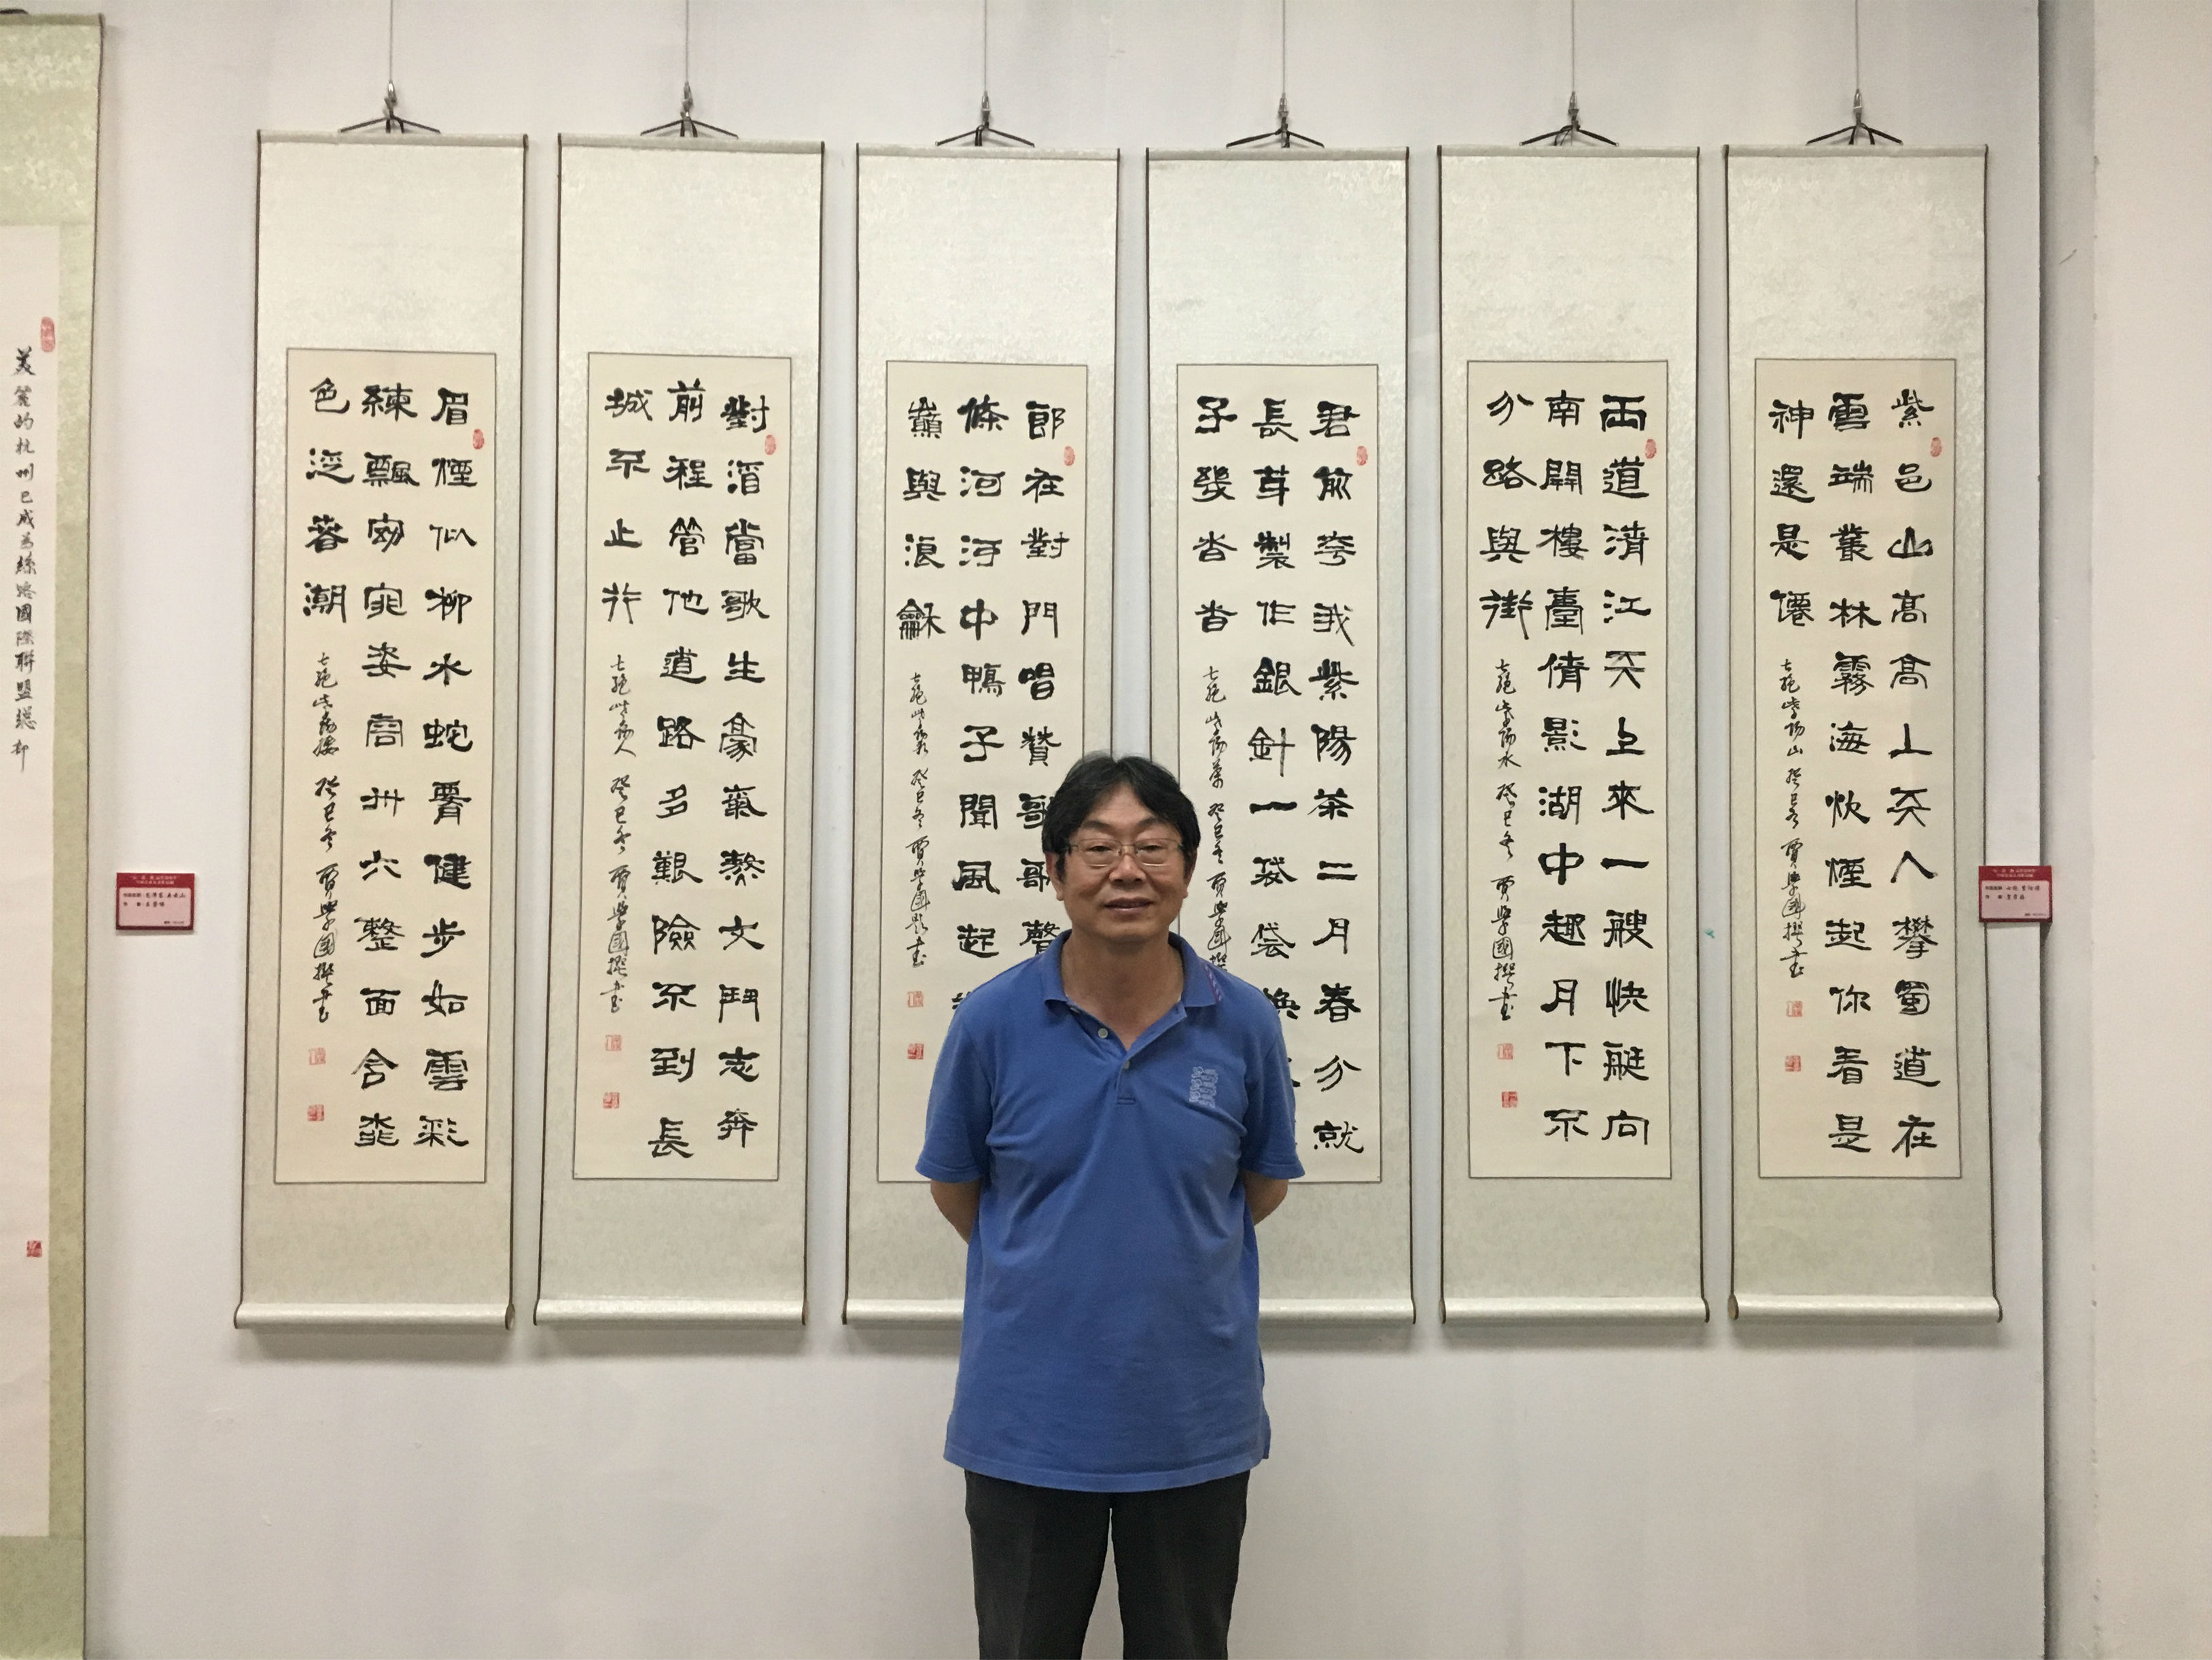 紫邑山高高上天人攀蜀道在
雲端叢林霧海炊煙起你看是
神還是僊
七絕紫陽山 癸巳冬 賈學國撰書
兩道清江天上來一艘快艇向
南開樓臺倩影湖中趣月下不
分路與街
七絕紫陽水 癸巳冬 賈學國撰書
君前夸我紫陽茶二月春分就
長芽製作銀針一袋袋換
子幾沓沓
七絕紫陽茶 癸巳冬 賈學國撰
郎在對門唱贊歌歌聲
條河河中鴨子聞風起
巔與浪龢
七絕紫陽歌 癸巳冬 賈學國撰書
對酒當歌生豪氣熬文鬥志奔
前程管他道路多艱險不到長
城不止行
七絕紫陽人 癸巳冬 賈學國撰書
眉煙似柳水蛇腰健步如雲彩
練飄窈窕姿容卅六整面含桃
色泛春潮
七絕紫陽 癸巳冬 賈學國撰書
美麗的杭州已成為絲路國際聯盟總部